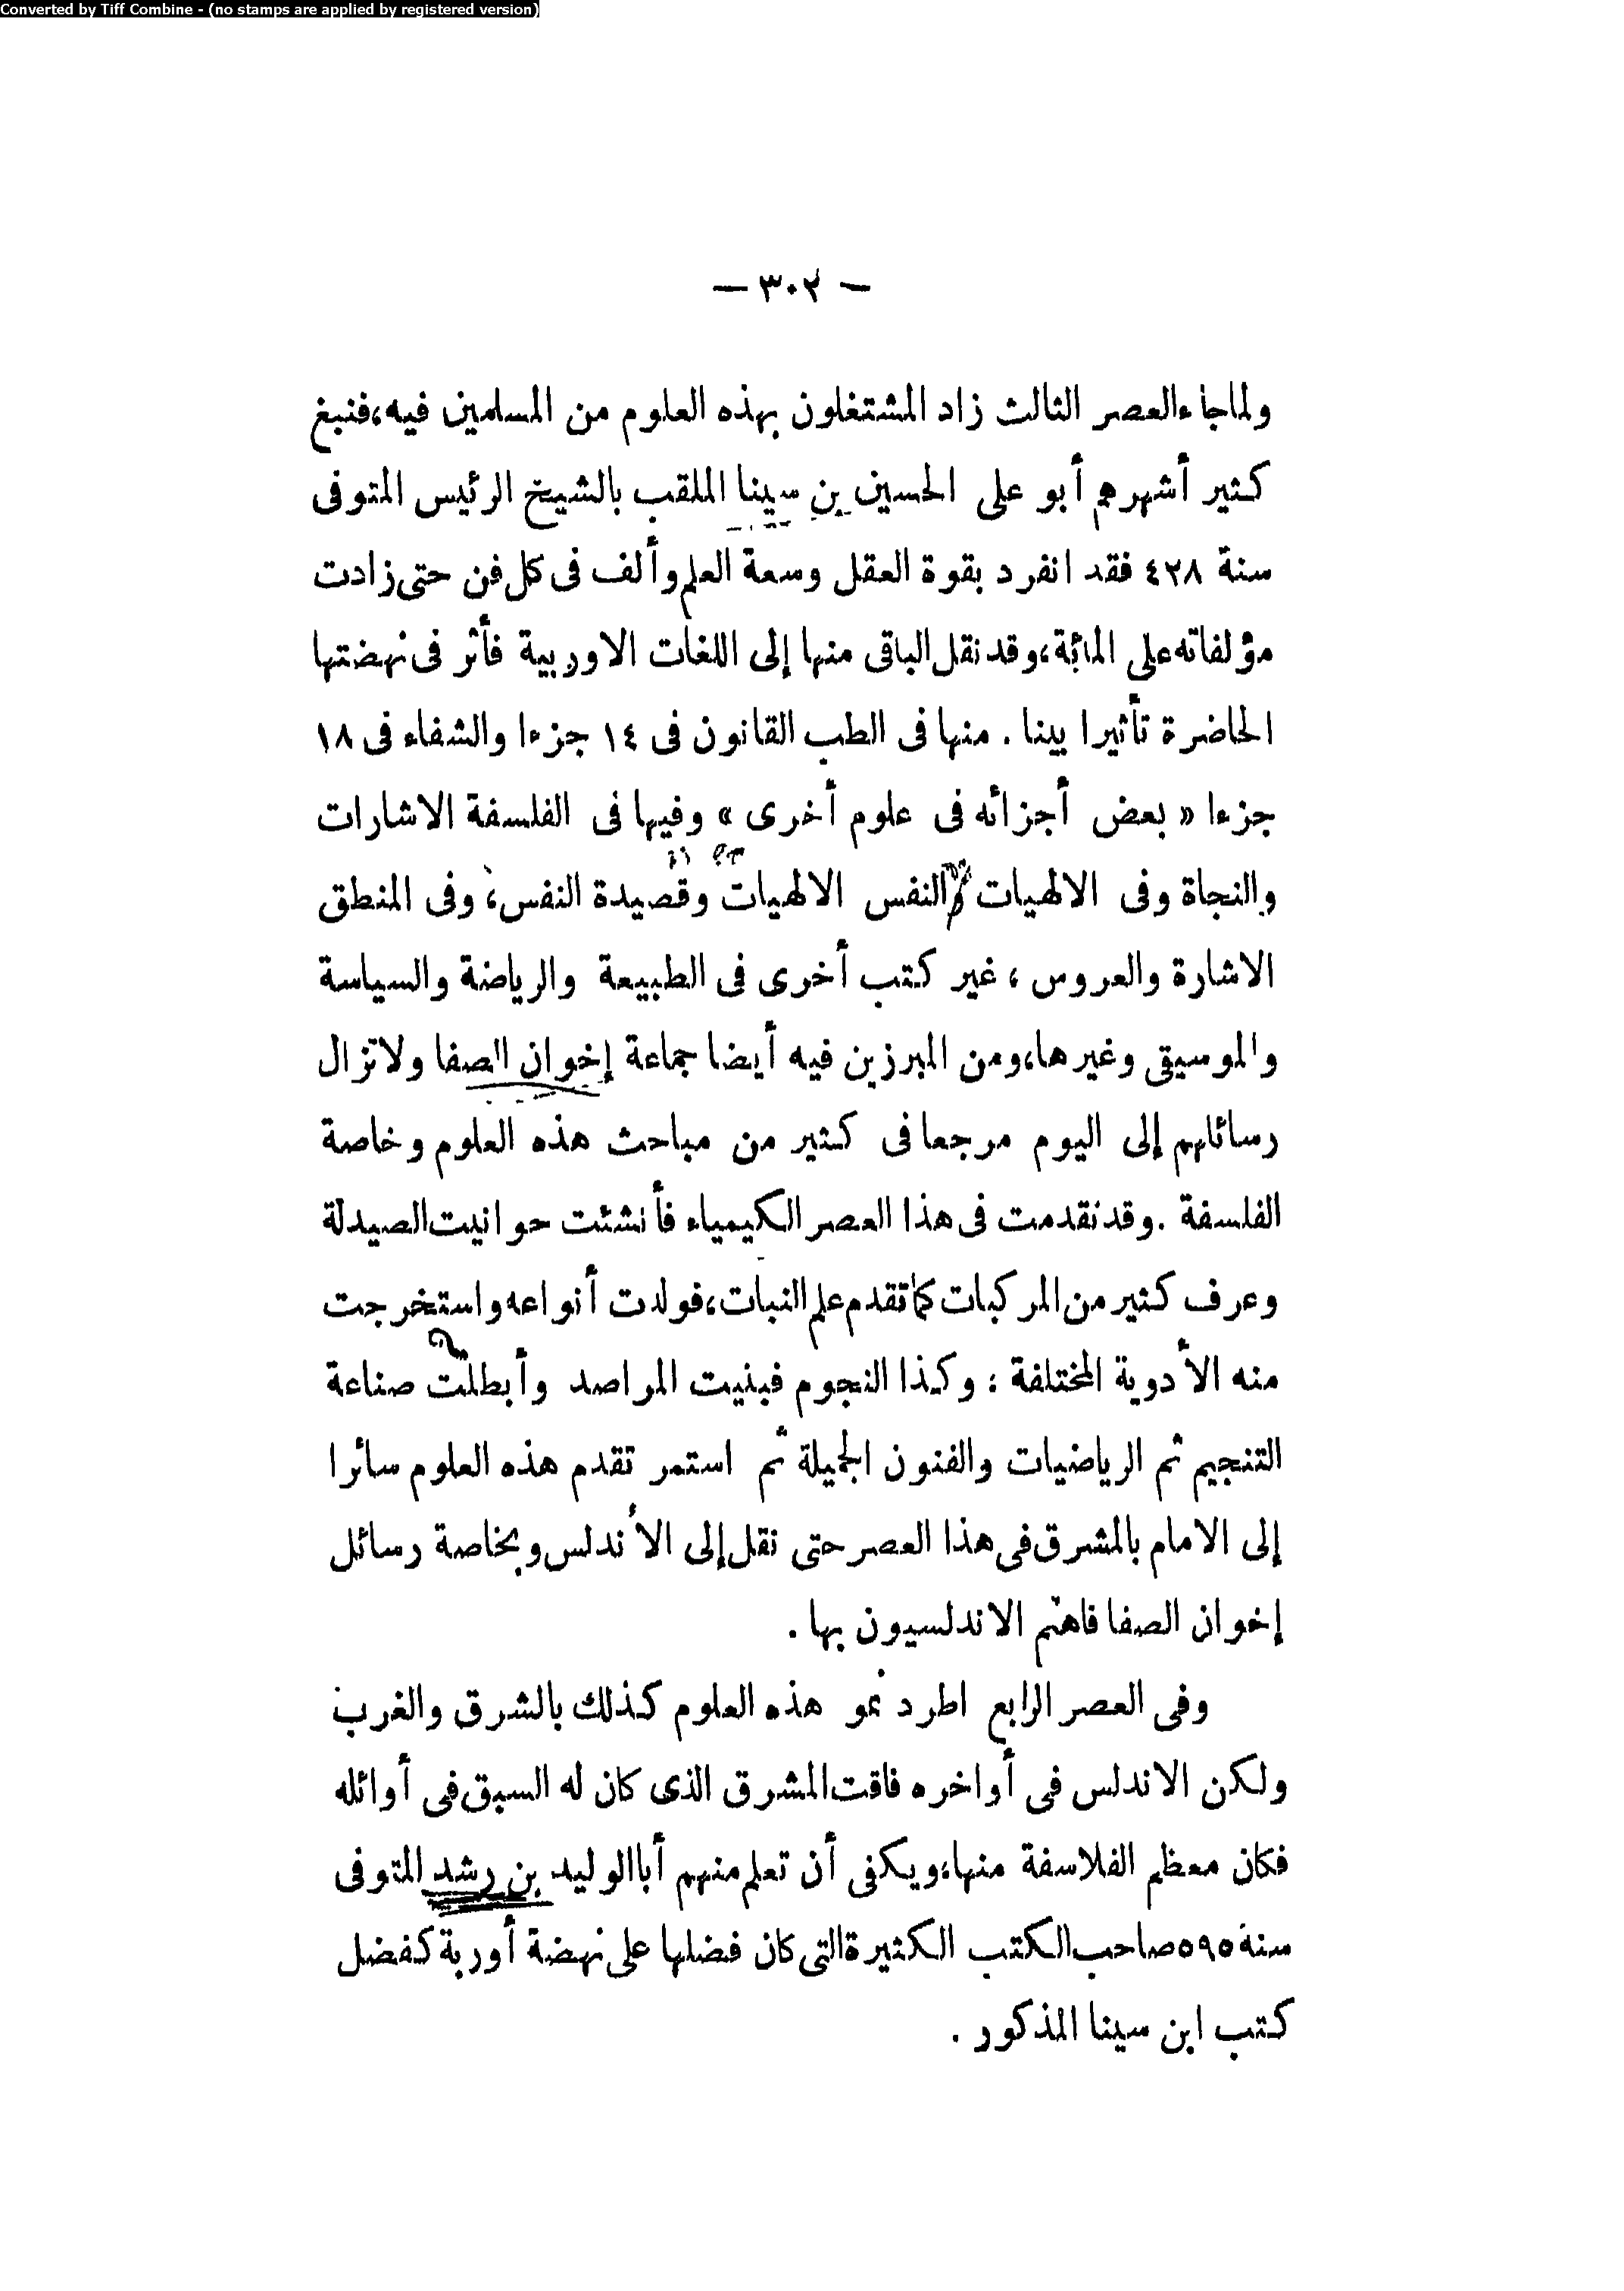 Converted by Tiff Combine - (no stamps are applied by registered version)
— ٣٠٢ —
ولما جاء العصر الثالث زاد المشتغلون بهذه العلوم من المسلمين فيه، فنبغ
كثير أشهرهم أبو على الحسين بن سينا الملقب بالشيخ الرئيس المتوفى
سنة ٤٢٨ فقد انفرد بقوة العقل وسعة العلم وألف فى كل فن حتى زادت
مؤلفاته على المائة، وقد نقل الباقى منها إلى اللغات الاوربية فأثر فى نهضتها
الحاضرة تأثيرا بينا . منها فى الطب القانون فى ١٤ جزءا والشفاء فى ١٨
جزءا « بعض أجزائه فى علوم أخرى » وفيها فى الفلسفة الاشارات
والنجاة وفى الالهيات النفس الالهيات وقصيدة النفس، وفى المنطق
الاشارة والعروس ، غير كتب أخرى فى الطبيعة والرياضة والسياسة
والموسيقى وغيرها، ومن المبرزين فيه أيضا جماعة إخوان الصفا ولا تزال
رسائلهم إلى اليوم مرجعا فى كثير من مباحث هذه العلوم وخاصة
الفلسفة . وقد تقدمت فى هذا العصر الكيمياء فأنشئت حوانيت الصيدلة
وعرف كثير من المركبات كما تقدم علم النبات، فولدت أنواعه واستخرجت
منه الأدوية المختلفة ؛ وكذا النجوم فبنيت المراصد وأبطلت صناعة
التنجيم ثم الرياضيات والفنون الجميلة ثم استمر تقدم هذه العلوم سائرا
إلى الامام بالمشرق فى هذا العصر حتى نقل إلى الأندلس وبخاصة رسائل
إخوان الصفا فاهتم الاندلسيون بها .
وفى العصر الرابع اطرد نمو هذه العلوم كذلك بالشرق والغرب
ولكن الاندلس فى أواخره فاقت المشرق الذى كان له السبق فى أوائله
فكان معظم الفلاسفة منها، ويكفى أن تعلم منهم أبا الوليد بن رشد المتوفى
سنة ٥٩٥ صاحب الكتب الكثيرة التى كان فضلها على نهضة أوربة كفضل
كتب ابن سينا المذكور .